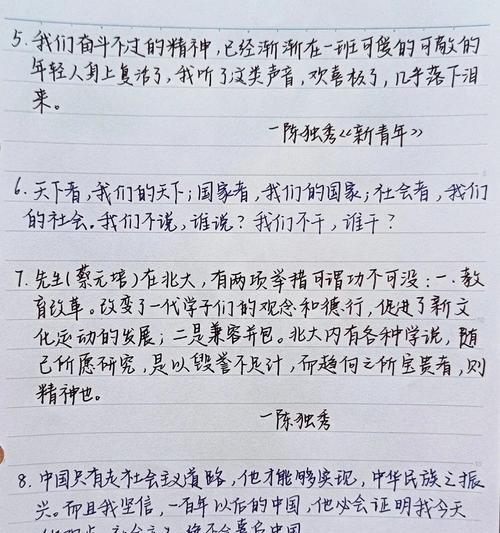 5. 我们奋斗不过的精神，已经渐渐在一班可爱的可敬的
年轻人身上复活了，我听了这类声音，欢喜极了，几乎落下泪
来。
—陈独秀《新青年》
6. 天下者，我们的天下；国家者，我们的国家；社会者，我们
的社会。我们不说，谁说？我们不干，谁干？
7. 先生(蔡元培)在北大，有两项举措可谓功不可没：一.教
育改革。改变了一代学子们的观念和德行，促进了新文
化运动的发展；二是兼容并包。北大内有各种学说，随
己所愿研究，是以毁誉不足计，而趋向之所宝贵者，则
精神也。
—陈独秀
8. 中国只有走社会主义道路，他才能够实现，中华民族之振
兴。而且我坚信，一百年以后的中国，他必会证明我今天